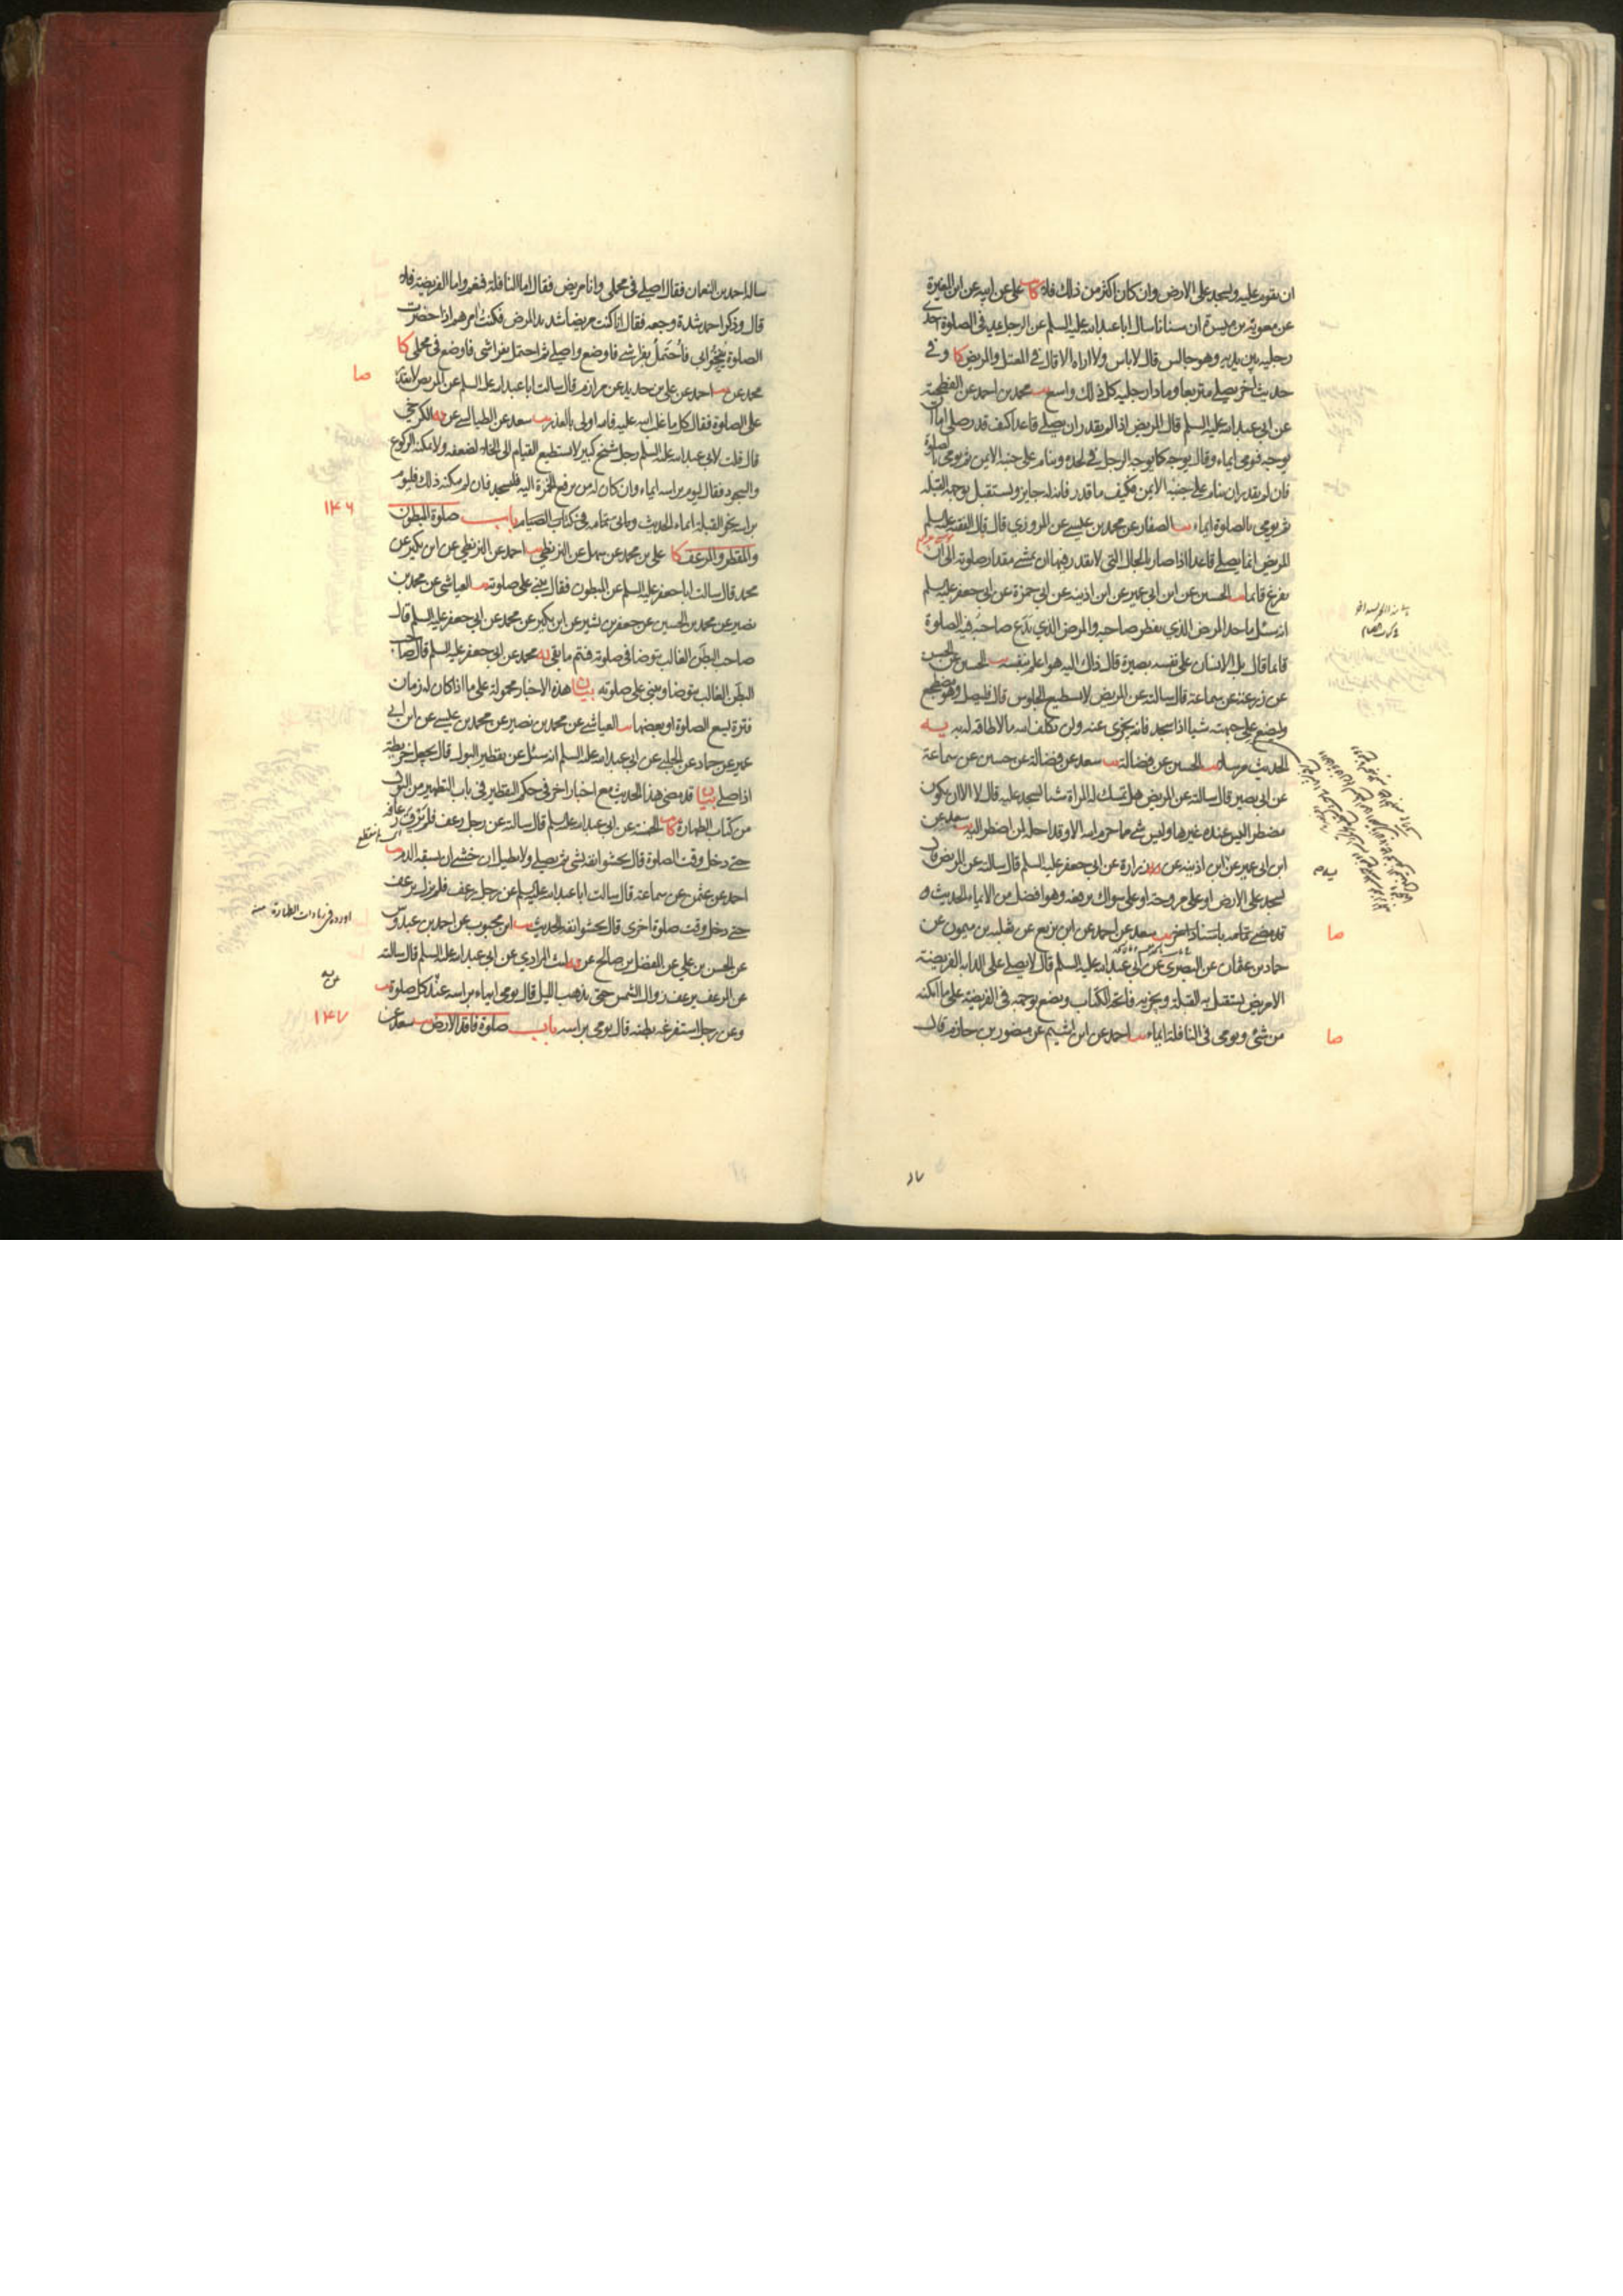 ان يقوم عليه وليسجد على الارض وان كان اكثر من ذلك فلا كا يب على عن ابيه عن ابن المغيرة
عن معوية بن ميسرة ان سنانا سال ابا عبد الله عليه السلم عن الرجل يمد في الصلوة احدى
رجليه بين يديه وهو جالس قال لا باس ولا اراه الا قال في المعتل والمريض كا و في
حديث اخر يصلي متربعا ومادا رجليه كل ذلك واسع يب محمد بن احمد عن الفطحية
عن ابي عبد الله عليه السلم قال المريض اذا لم يقدر ان يصلي قاعدا كيف قدر صلى اما ان
يوجه فيومي ايماء وقال يوجه كما يوجه الرجل في لحده وينام على جنبه الايمن ثم يومي بالصلوة
فان لم يقدر ان ينام على جنبه الايمن فكيف ما قدر فانه له جايز ويستقبل بوجهه القبلة
ثم يومي بالصلوة ايماء يب الصفار عن محمد بن عيسى عن المروزي قال قال الفقيه عليه السلم
المريض انما يصلي قاعدا اذا صار بالحال التي لا يقدر فيها ان يمشي مقدار صلوته الى ان
يفرغ قائما يب الحسين عن ابن ابي عمير عن ابن اذينة عن ابي حمزة عن ابي جعفر عليه السلم
انه سئل ما حد المرض الذي يفطر صاحبه والمرض الذي يدع صاحبه فيه الصلوة
قائما قال بل الانسان على نفسه بصيرة قال ذاك اليه هو اعلم بنفسه يب الحسين عن الحسن
عن زرعة عن سماعة قال سالته عن المريض لا يستطيع الجلوس قال فليصل وهو مضطجع
وليضع على جبهته شيئا اذا سجد فانه يجزي عنه ولن يكلف الله ما لا طاقة له به يه
الحديث مرسلا يب الحسين عن فضالة يب سعد عن فضالة عن حسين عن سماعة
عن ابي بصير قال سالته عن المريض هل تمسك له المراة شيئا يسجد عليه قال لا الا ان يكون
مضطرا ليس عنده غيرها وليس شئ مما حرم الله الا وقد احله لمن اضطر اليه يب سعد عن
ابن ابي عمير عن ابن اذينة عن زرارة عن ابي جعفر عليه السلم قال سالته عن المريض قال
يسجد على الارض او على مروحة او على سواك يرفعه وهو افضل من الايماء الحديث
قد مضى تمامه باسناد اخر يب سعد عن احمد عن ابن بزيع عن ثعلبة بن ميمون عن
حماد بن عثمان عن البصري عن ابي عبد الله عليه السلم قال لا يصلي على الدابة الفريضة
الا مريض يستقبل به القبلة ويجزيه فاتحة الكتاب ويضع بوجهه في الفريضة على ما امكنه
من شئ ويومي في النافلة ايماء يب احمد عن ابن اشيم عن منصور بن حازم قال
صا
صا
ساله احمد بن النعمان فقال اصلي في محملي وانا مريض فقال اما النافلة فنعم واما الفريضة فلا
قال وذكر احمد شدة وجعه فقال انا كنت مريضا شديد المرض فكنت امرهم اذا حضرت
الصلوة ينيخوا بي فاحتمل بفراشي فاوضع واصلي ثم احتمل بفراشي فاوضع في محملي كا
محمد عن يب احمد عن علي بن حديد عن مرازم قال سالت ابا عبد الله عليه السلم عن المريض لا يقدر
على الصلوة فقال كل ما غلب الله عليه فالله اولى بالعذر يب سعد عن الطيالسي عن يه الكرخي
قال قلت لابي عبد الله عليه السلم رجل شيخ كبير لا يستطيع القيام الى الخلاء لضعفه ولا يمكنه الركوع
والسجود فقال ليوم براسه ايماء وان كان له من يرفع الخمرة اليه فليسجد فان لم يمكنه ذلك فليوم
براسه نحو القبلة ايماء الحديث وياتي تمامه في كتاب الصيام باب صلوة المبطون
والمقطر والمرعف كا علي بن محمد عن سهل عن البزنطي يب احمد عن البزنطي عن ابن بكير عن
محمد قال سالت ابا جعفر عليه السلم عن المبطون فقال يبني على صلوته يب العياشي عن محمد بن
نصير عن محمد بن الحسين عن جعفر بن بشير عن ابن بكير عن محمد عن ابي جعفر عليه السلم قال
صاحب البطن الغالب يتوضا في صلوته فيتم ما بقي يه محمد عن ابي جعفر عليه السلم قال صاحب
البطن الغالب يتوضا ويبني على صلوته بيان هذه الاخبار محمولة على ما اذا كان له زمان
فترة يسع الصلوة او بعضها يب العياشي عن محمد بن نصير عن محمد بن عيسى عن ابن ابي
عمير عن حماد عن الحلبي عن ابي عبد الله عليه السلم انه سئل عن تقطير البول قال يجعل خريطة
اذا صلى بيان قد مضى هذا الحديث مع اخبار اخر في حكم التقطير في باب التطهير من البول
من كتاب الطهارة كا يب الخمسة عن ابي عبد الله عليه السلم قال سالته عن رجل رعف فلم يرق رعافه
حتى دخل وقت الصلوة قال يحشو انفه بشئ ثم يصلي ولا يطيل ان خشي ان يسبقه الدم يب
احمد عن عثمن عن سماعة قال سالت ابا عبد الله عليه السلم عن رجل رعف فلم يزل يرعف
حتى دخل وقت صلوة اخرى قال يحشو انفه الحديث يب ابن محبوب عن احمد بن عبدوس
عن الحسن بن علي عن المفضل بن صالح عن يه ليث المرادي عن ابي عبد الله عليه السلم قال سالته
عن المرعف يرعف زوال الشمس حتى يذهب الليل قال يومي ايماء براسه عند كل صلوة يب
وعن رجل استفرغه بطنه قال يومي براسه باب صلوة فاقد الارض يب سعد عن
صا
١٤٦
اورده في زيادات الطهارة منه
١٤٧